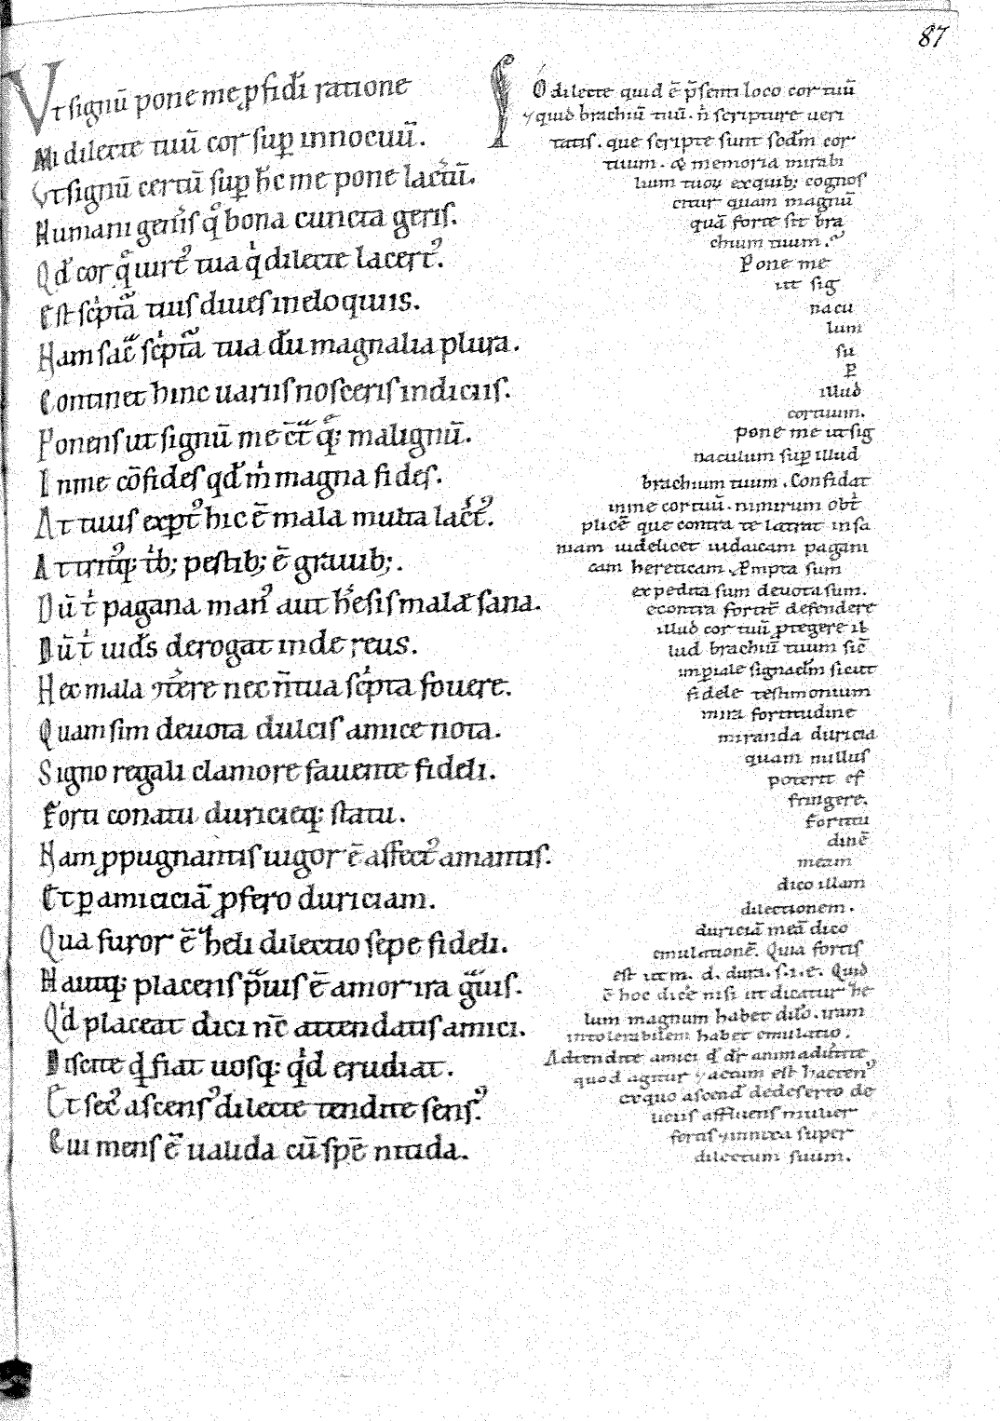 87
Vt signū pone me ꝓ fidi ratione
Mi dilecte tuū cor suꝑ innocuū.
Vt signū certū suꝑ hc me pone
Humani gen̄is q bona cuncta geris.
Qd cor tua qi dilecte lacert᾿.
Est tuis diues in eloquiis.
Nam tua dm̄ magnalia plura.
Continet hinc uariis nosceris indiciis.
Ponens ut signū me malignū.
In me cōfides qd m magna fides.
At tuus hic ē mala multa
pestib; ē grauib;.
pagana man᾿ aut mala sana.
derogat inde reus.
Hec mala nec fouere.
Quam sim deuota dulcis amice nota.
Signo regali clamore fauente fideli.
Forti conatu duricieq; statu.
Nam ꝓpugnantis uigor ē affect᾿ amantis.
Et ꝑ amiciciā ꝓfero duriciam.
Qua furor ē heli dilectio sepe fideli.
placens ē amor ira
Qd placeat dici nc̄ attendatis amici.
Discite qd fiat uosq; qd erudiat.
Et sec᾿ ascens᾿ dilecte tendite sens᾿.
Cui mens ē ualida cū spē nitida.
O dilecte quid ē p̄senti loco cor tuū
⁊ quid brachiū tuū. n̄ scripture ueri
tatis. que scripte sunt sedm cor
tuum. memoria mirabi
lium tuoꝝ ex quib; cognos
citur quam magnū
quā forte sit bra
chium tuum.
Pone me
ut sig
nacu
lum
su
ꝑ
illud
cor tuum.
pone me ut sig
naculum suꝑ illud
brachium tuum. Confidat
in me cor tuū. nimirum
que contra te latrat insa
niam uidelicet iudaicam pagani
cam hereticam. sum
expedita sum deuota sum.
econtra defendere
illud cor tuū ꝓtegere il
lud brachiū tuum sic̄
sicut
fidele testimonium
mira fortitudine
miranda duricia
quam nullus
poterit ef
fringere.
fortitu
dinē
meam
dico illam
dilectionem.
duriciā meā dico
emulationē. Quia fortis
est ut m. d. dura. s. i. e. Quid
ē hoc dicē nisi ut dicatur he
lum magnum habet iram
intolerabilem habet emulatio.
Adtendite amici
quod agitur ⁊ actum est
ex quo ascend de deserto de
liciis affluens mulier
fortis ⁊ innixa super
dilectum suum.